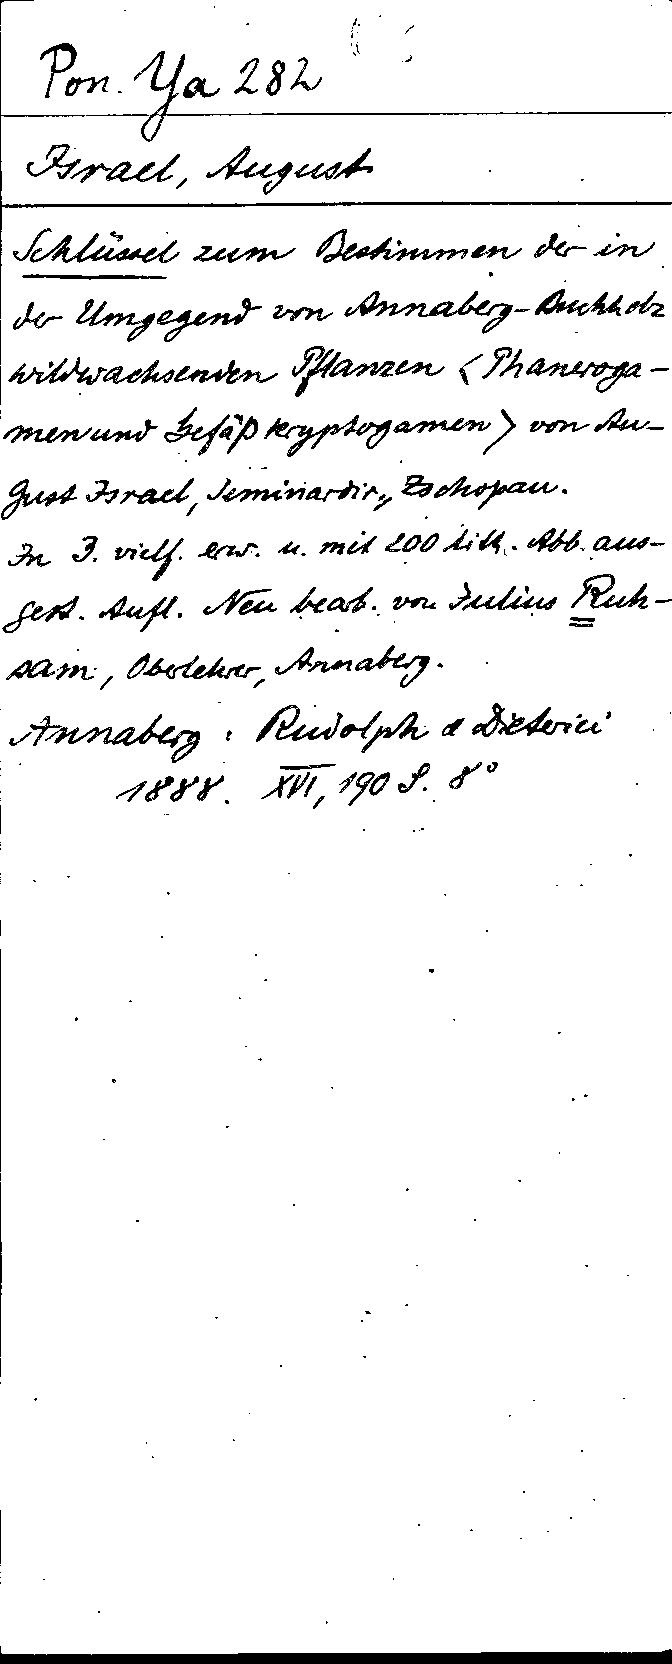 Pon. Ya 282
Israel, August
Schlüssel zum Bestimmen der in
der Umgegend von Annaberg-Buchholz
wildwachsenden Pflanzen <Phaneroga-
men und Gefäßkryptogamen> von Au-
gust Israel, Seminardir., Zschopau.
In 3. vielf. erw. u. mit 200 lith. Abb. aus-
gest. Aufl. Neu bearb. von Julius Ruh-
sam, Oberlehrer, Annaberg.
Annaberg: Rudolph & Dieterici
1888. XVI, 190 S. 8°